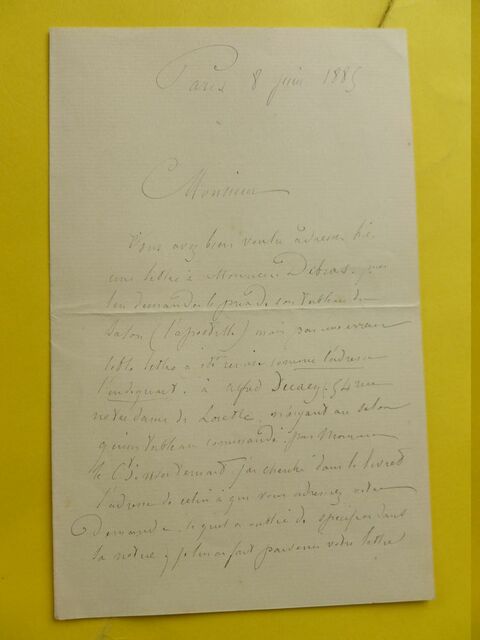 Paris 8 juin 1885
Monsieur
Vous avez bien voulu adresser hier
une lettre à Monsieur Debras pour
lui demander le prix de son tableau du
Salon (l'apostille) mais par une erreur
cette lettre a été remise comme l'adresse
l'indiquait à alfred 54 rue
notre dame de Lorette, n'ayant au salon
qu'un tableau commandé par Monsieur
le Cte j'ai cherché dans le livret
l'adresse de celui à qui vous adressez votre
Demande lequel a oublié de spécifier dans
la notice, je lui ai fait parvenir votre lettre